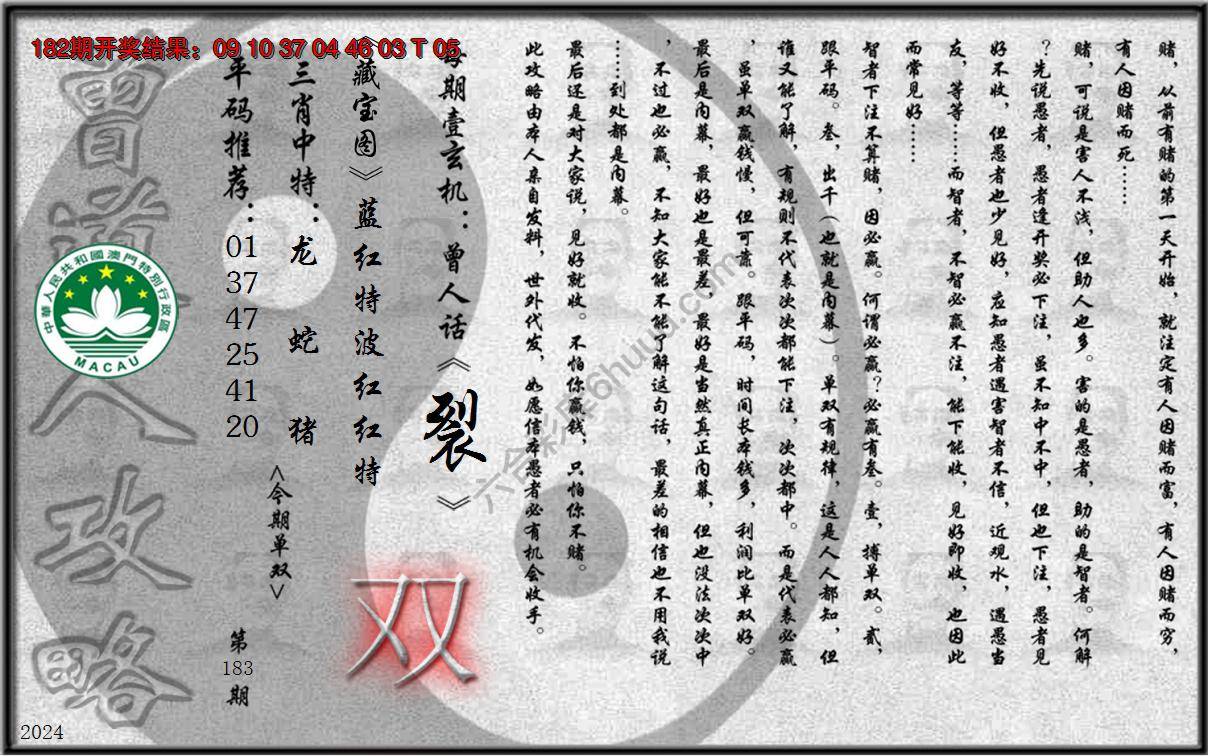 182期开奖结果：09 10 37 04 46 03 T 05
赌，从前有赌的第一天开始，就注定有人因赌而富，有人因赌而穷，
有人因赌而死……
赌，可说是害人不浅，但助人也多。害的是愚者，助的是智者。何解
？先说愚者，愚者逢开奖必下注，虽不知中不中，但也下注，愚者见
好不收，但愚者也少见好，应知愚者遇害智者不信，近观水，遇愚当
友，等等……而智者，不智必赢不注，能下能收，见好即收，也因此
而常见好……
智者下注不算赌，因必赢。何谓必赢？必赢有叁。壹，搏单双。贰，
跟平码。叁，出千（也就是内幕）。单双有规律，这是人人都知，但
谁又能了解，有规则不代表次次都能下注，次次都中。而是代表必赢
，虽单双赢钱慢，但可靠。跟平码，时间长本钱多，利润比单双好。
最后是内幕，最好也是最差，最好是当然真正内幕，但也没法次次中
，不过也必赢，不知大家能不能了解这句话，最差的相信也不用我说
……到处都是内幕。
最后还是对大家说，见好就收。不怕你赢钱，只怕你不赌。
此攻略由本人亲自发料，世外代发，如愿信本愚者必有机会收手。
每期壹玄机：曾人话《裂》
《藏宝图》蓝红特波红红特
三肖中特：龙 蛇 猪
平码推荐：01 37 47 25 41 20
<今期单双>
双
第183期
曾道人攻略
中華人民共和國澳門特別行政區
MACAU
六合彩库6huuu.com
2024